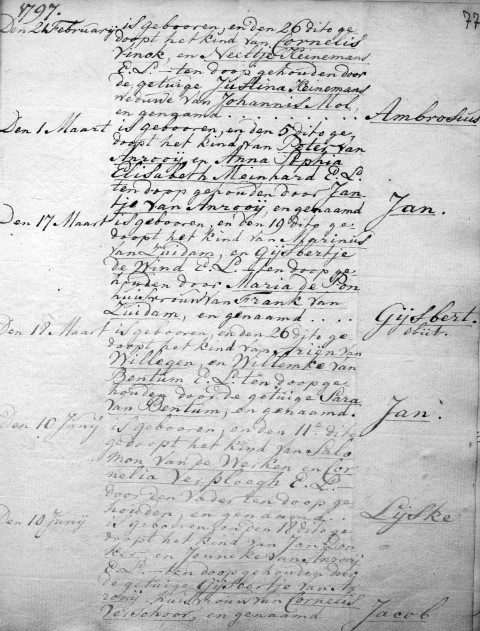 1797.
77
Den 21 Februarij is gebooren, en den 26 dito ge
doopt het kind van Cornelis
Vinok, en Neeltje Heinemans
E. L. ten doop gehouden door
de getuige Justina Heinemans
weduwe van Johannis Mol,
en genaamd . . . . . . . . . . Ambrosius
Den 1 Maart is gebooren, en den 5 dito ge,
doopt het kind van Peter van
Anrooij, en Anna Sophia
Elisabeth Meinhard E. L.
ten doop gehouden door Jan,
tje van Anrooij, en genaamd Jan.
Den 17 Maart is gebooren, en den 19 dito ge,
doopt het kind van Marinus
van Zuidam, en Gijsbertje
de Wind E. L. ten doop ge,
houden door Maria de
huisvrouw van Frank van
Zuidam, en genaamd . . . . Gijsbert.
Den 18 Maart is gebooren, en den 26 dito ge
doopt het kind van Ariën van
Willegen, en Willemke van
Bentum E. L. ten doop ge
houden door de getuige Sara
van Bentum, en genaamd. Jan.
Den 10 Junij is gebooren, en den 11e dito
gedoopt het kind van Salo
mon van de Werken en Cor
nelia Verploegh E. L.
door den Vader ten doop ge
houden, en genaamd Lijske
Den 10 Junij is gebooren en den 18 dito ge
doopt het kind van Jan
en Jenneke van Anrooij
E. L. ten doop gehouden door
de getuige Gijsbertje van An
rooij huisvrouw van Cornelis
Verschoor, en genaamd Jacob